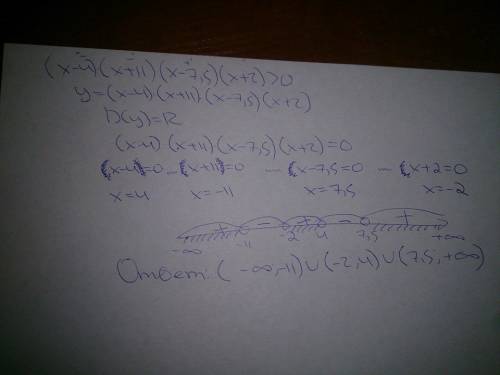 (x-4)(x+11)(x-7,5)(x+2)>0
y=(x-4)(x+11)(x-7,5)(x+2)
D(y)=R
(x-4)(x+11)(x-7,5)(x+2)=0
(x-4)=0 - (x+11)=0 - (x-7,5=0 - (x+2=0
x=4 x=-11 x=7,5 x=-2
+ - + - +
-∞ -11 -2 4 7,5 +∞
Ответ: (-∞;-11)∪(-2,4)∪(7,5,+∞)